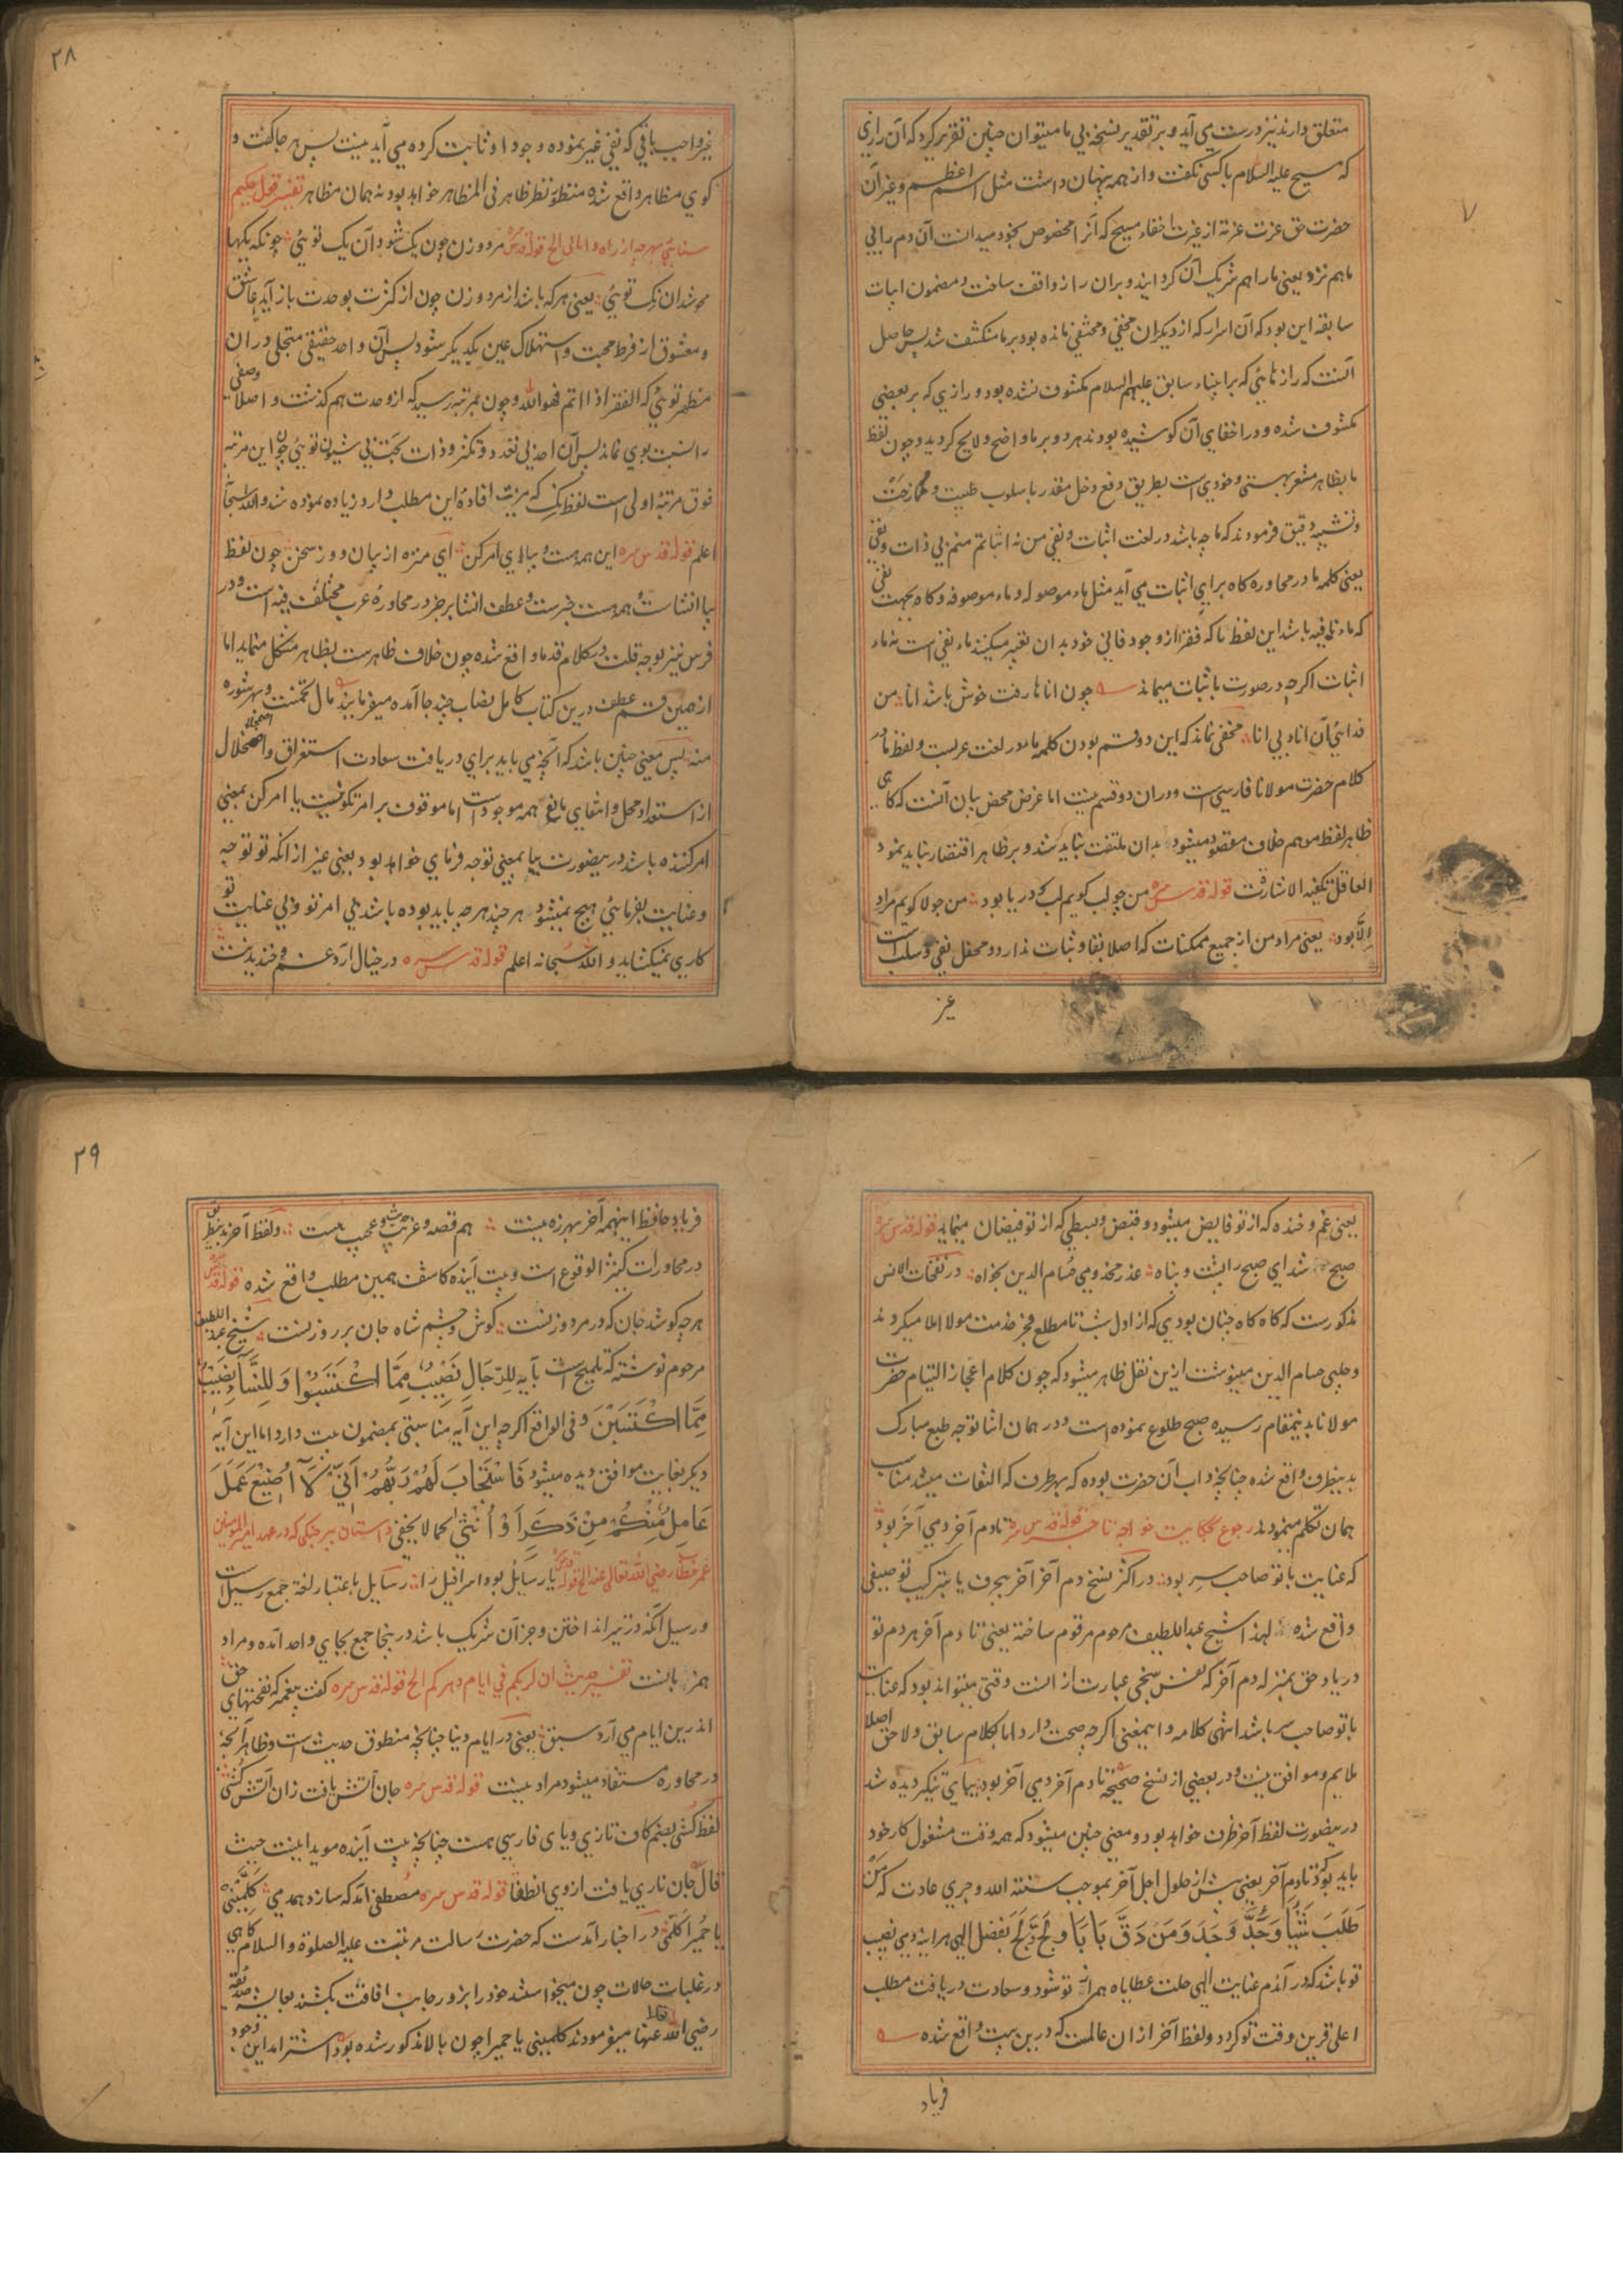 متعلق دارند نیز درست می آید و بر تقدیر نسخه بی ما میتوان چنین تقریر کرد که آن رازی
که مسیح علیه السلام با کسی نگفت و از همه پنهان داشت مثل اسم اعظم و غیر آن
حضرت حق عزت عزته از غیرت باخفاء مسیح که آنرا مخصوص بخود میدانست آن دم را بی
ما هم نزد یعنی ما را هم شریک آن گردانید و بران راز واقف ساخت و مضمون ابیات
سابقه این بود که آن اسرار که از دیگران مخفی و محتفی مانده بود بر ما منکشف شد پس حاصل
آنست که رازهایی که بر انبیاء سابق علیهم السلام مکشوف نشده بود و رازی که بر بعضی
مکشوف شده و در اخفای آن کوشیده بودند هر دو بر ما واضح و لایح گردید و چون لفظ
ما بظاهر مشعر بهستی و خودی است بطریق دفع دخل مقدر باسلوب طیبت و
دقیق فرمودند که ما چه باشد در لغت اثبات و نفی من نه اثباتم منم بی ذات و نفی
یعنی کلمه ما در محاوره گاه برای اثبات می آید مثل ماء موصوله و ماء موصوفه و گاه بجهت نفی
که ماء نافیه باشد این لفظ ما که فقرا از وجود فانی خود بدان تعبیر میکنند ماء نفی است نه ماء
اثبات اگرچه در صورت باثبات میماند چون انا ها رفت خوش باشد انا من
فدایی آن اناء بی انا مخفی نماند که این دو قسم بودن کلمه ما در لغت عربست و لفظ ما در
کلام حضرت مولانا فارسی است و دران دو قسم نیست اما غرض محض بیان آنست که گاهی
ظاهر لفظ موهم خلاف مقصود میشود بدان ملتفت نباید شد و بر ظاهر اقتصار نباید نمود
العاقل تکفیه الاشارة قوله قدس سره من چو لب گویم لب دریا بود من چو لا گویم مراد
الا بود یعنی مراد من از جمیع ممکنات که اصلا بقا و ثبات ندارد و محفل نفی و سلب است
غیر
۲۸
غیر واجب باقی که نفی غیر نموده وجود او ثابت کرده می آید نیست پس هر جا گفت و
گوی مظاهر واقع شده منظور نظر ظاهر فی المظاهر خواهد بود نه همان مظاهر تفسیر قول حکیم
سنایی بهرچه از راه وامانی الخ قوله قدس سره مرد و زن چون یک شود آن یک تویی چونکه یکها
محو شد آنک تویی یعنی هر که باشد از مرد و زن چون از کثرت بوحدت باز آید عاشق
و معشوق از فرط محبت و استهلاک عین یکدیگر شود پس آن واحد حقیقی متجلی دران
مظهر تویی که الفقر اذا تم فهو الله و چون بمرتبه رسید که از وحدت هم گذشت و اصلا وصفی
را نسبت بوی نماند پس آن احد بی تعدد و تکثر و ذات بحت بی شیون تویی چون این مرتبه
فوق مرتبه اولی است لفظ نک که مزیت افاده این مطلب دارد زیاده نموده شد والله سبحانه
اعلم قوله قدس سره این همه هست و بیا ای امر کن ای منزه از بیان و وز سخن چون لفظ
بیا انشاست و همه هست خبرست و عطف انشا بر خبر در محاوره عرب مختلف فیه است و در
فرس نیز بوجه قلت در کلام قدما واقع شده چون خلاف ظاهرست بظاهر مشکل مینماید اما
از همین قسم عطف درین کتاب کامل نصاب چند جا آمده میفرمایند مال
منه پس معنی چنین باشد که آنچه می باید برای دریافت سعادت استغراق و اضمحلال
از استعداد محل و انتفای مانع همه موجود است اما موقوف بر امر تکوینیست یا امر کن بمعنی
امر کننده باشد درینصورت بیا بمعنی توجه فرمای خواهد بود یعنی غیر از انکه تو توجه
و عنایت بفرمایی هیچ نمیشود هر چند هر چه باید بوده باشد بی امر تو و بی عنایت تو
کاری نمیگشاید والله سبحانه اعلم قوله قدس سره در خیال آرد غم و خندیدنت
یعنی غم و خنده که از تو فایض میشود و قبض و بسطی که از تو فیضان مینماید قوله قدس سره
صبح شد ای صبح را پشت و پناه عذر مخدومی حسام الدین بخواه در نفحات الانس
مذکورست که گاه گاه چنان بودی که از اول شب تا مطلع فجر خدمت مولانا املا میکردند
و چلپی حسام الدین مینوشت ازین نقل ظاهر میشود که چون کلام اعجاز التیام حضرت
مولانا بدینمقام رسیده صبح طلوع نموده است و در همان اثنا توجه طبع مبارک
بدینطرف واقع شده چنانچه داب آن حضرت بوده که بهر طرف که التفات میشد مناسب
همان تکلم مینمودند رجوع بحکایت خواجه تاجر قوله قدس سره تا دم آخر دمی آخر بود
که عنایت با تو صاحب سر بود در اکثر نسخ دم آخر آخر بحرف یا بترکیب توصیفی
واقع شده لهذا شیخ عبداللطیف مرحوم مرقوم ساخته یعنی تا دم آخر هر دم تو
در یاد حق بمنزله دم آخر که نفس سخی عبارت از انست وقتی میتواند بود که عنایت
با تو صاحب سر باشد انتهی کلامه و اینمعنی اگرچه صحت دارد اما بکلام سابق و لاحق اصلا
ملایم و موافق نیست و در بعضی از نسخ صحیحه تا دم آخر دمی آخر بود بیای تنکیر دیده شد
درینصورت لفظ آخر ظرف خواهد بود و معنی چنین میشود که همه وقت مشغول کار خود
باید بود که تا دم آخر یعنی پیش از حلول اجل آخر بموجب سنته الله و جری عادت که من
طَلَبَ شَیْئاً وَجَدَّ وَجَدَ وَمَنْ دَقَّ بَاباً وَلَجَّ وَلَجَ بفضل الهی هر اینه دمی نصیب
تو باشد که در آندم عنایت الهی جلت عطایاه همراز تو شود و سعادت دریافت مطلب
اعلی قرین وقت تو گردد و لفظ آخر ازان عالمست که درین بیت واقع شده
فریاد
۲۹
فریاد حافظ اینهمه آخر بهرزه نیست هم قصه و غریب و حدیث عجیب هست و لفظ آخر بدینطریق
در محاورات کثیر الوقوع است و بیت آینده کاشف همین مطلب واقع شده قوله قدس سره
هر چه کوشد جان که در مرد و زنست گوش و چشم شاه جان بر روزنست شیخ عبد اللطیف
مرحوم نوشته که تلمیح است بآیه لِلرِّجَالِ نَصِیْبٌ مِمَّا اکْتَسَبُوا وَلِلنِّسَاءِ نَصِیْبٌ
مِمَّا اکْتَسَبْنَ و فی الواقع اگرچه این آیه مناسبتی بمضمون بیت دارد اما این آیه
دیگر بغایت موافق دیده میشود فَاسْتَجَابَ لَهُمْ رَبُّهُمْ اَنِّی لَا اُضِیْعُ عَمَلَ
عَامِلٍ مِنْکُمْ مِنْ ذَکَرٍ اَوْ اُنْثَی کما لا یخفی داستان پیر چنگی که در عهد امیر المومنین
عمر خطاب رضی الله تعالی عنه الخ قوله قدس سره یا رسایل بود اسرافیل را رسایل باعتبار لغة جمع رسیل است
و رسیل آنکه در تیر انداختن و جز آن شریک باشد درینجا جمع بجای واحد آمده و مراد
همزبانست تفسیر حدیث ان لربکم فی ایام دهرکم الخ قوله قدس سره گفت پیغمبر که نفحتهای حق
اندرین ایام می آرد سبق یعنی در ایام دنیا چنانچه منطوق حدیث است و ظاهر آنچه
در محاوره مستفاد میشود مراد نیست قوله قدس سره جان آتش یافت زان آتش کشی
لفظ کشی بضم کاف تازی و یای فارسی هست چنانچه بیت آینده موید اینست حیث
قال جان ناری یافت از وی انطفا قوله قدس سره مصطفی آمد که سازد همدمی کلمینی
یا حمیرا کلمی در اخبار آمدست که حضرت رسالت مرتبت علیه الصلوة والسلام گاهی
در غلبات حالات چون میخواستند خود را بزور جانب افاقت بکشند بعایشه صدیقه
رضی الله عنها میفرمودند کلمینی یا حمیرا چون بالا مذکور شده بود این وجود